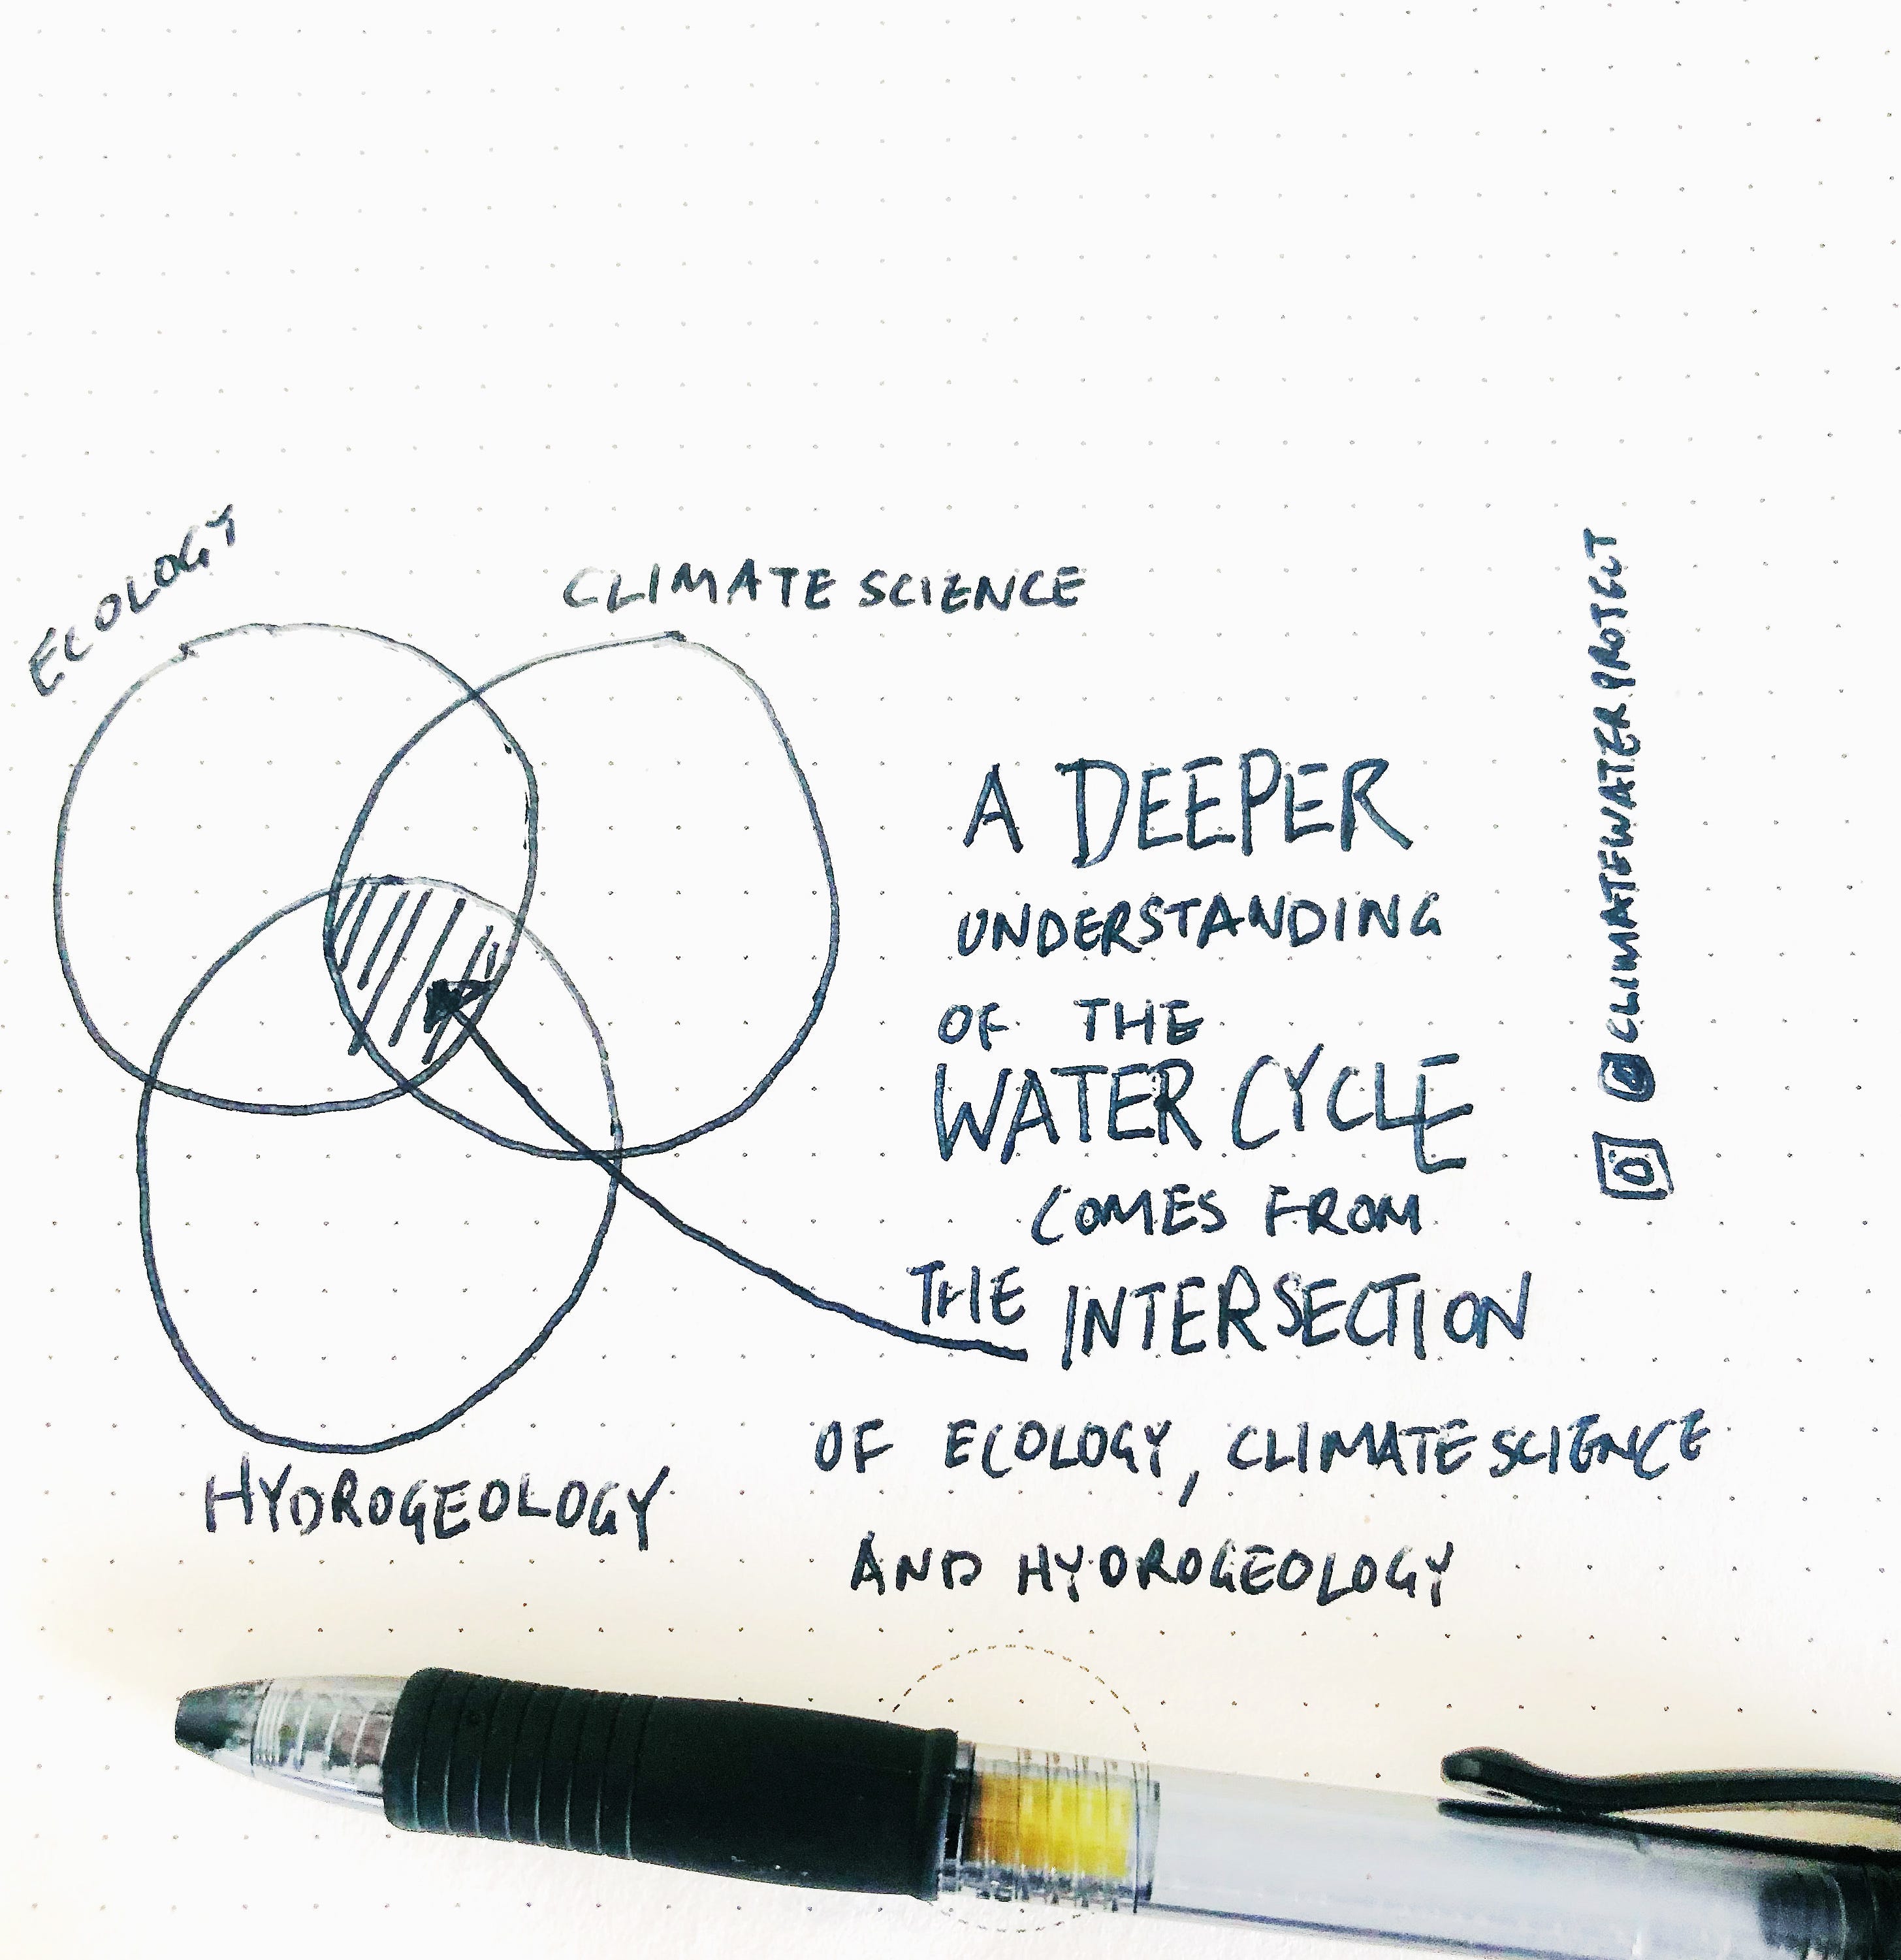 ECOLOGY
CLIMATE SCIENCE
A DEEPER
UNDERSTANDING
OF THE
WATER CYCLE
COMES FROM
THE INTERSECTION
OF ECOLOGY, CLIMATE SCIENCE
AND HYDROGEOLOGY
HYDROGEOLOGY
@CLIMATEWATERPROTECT